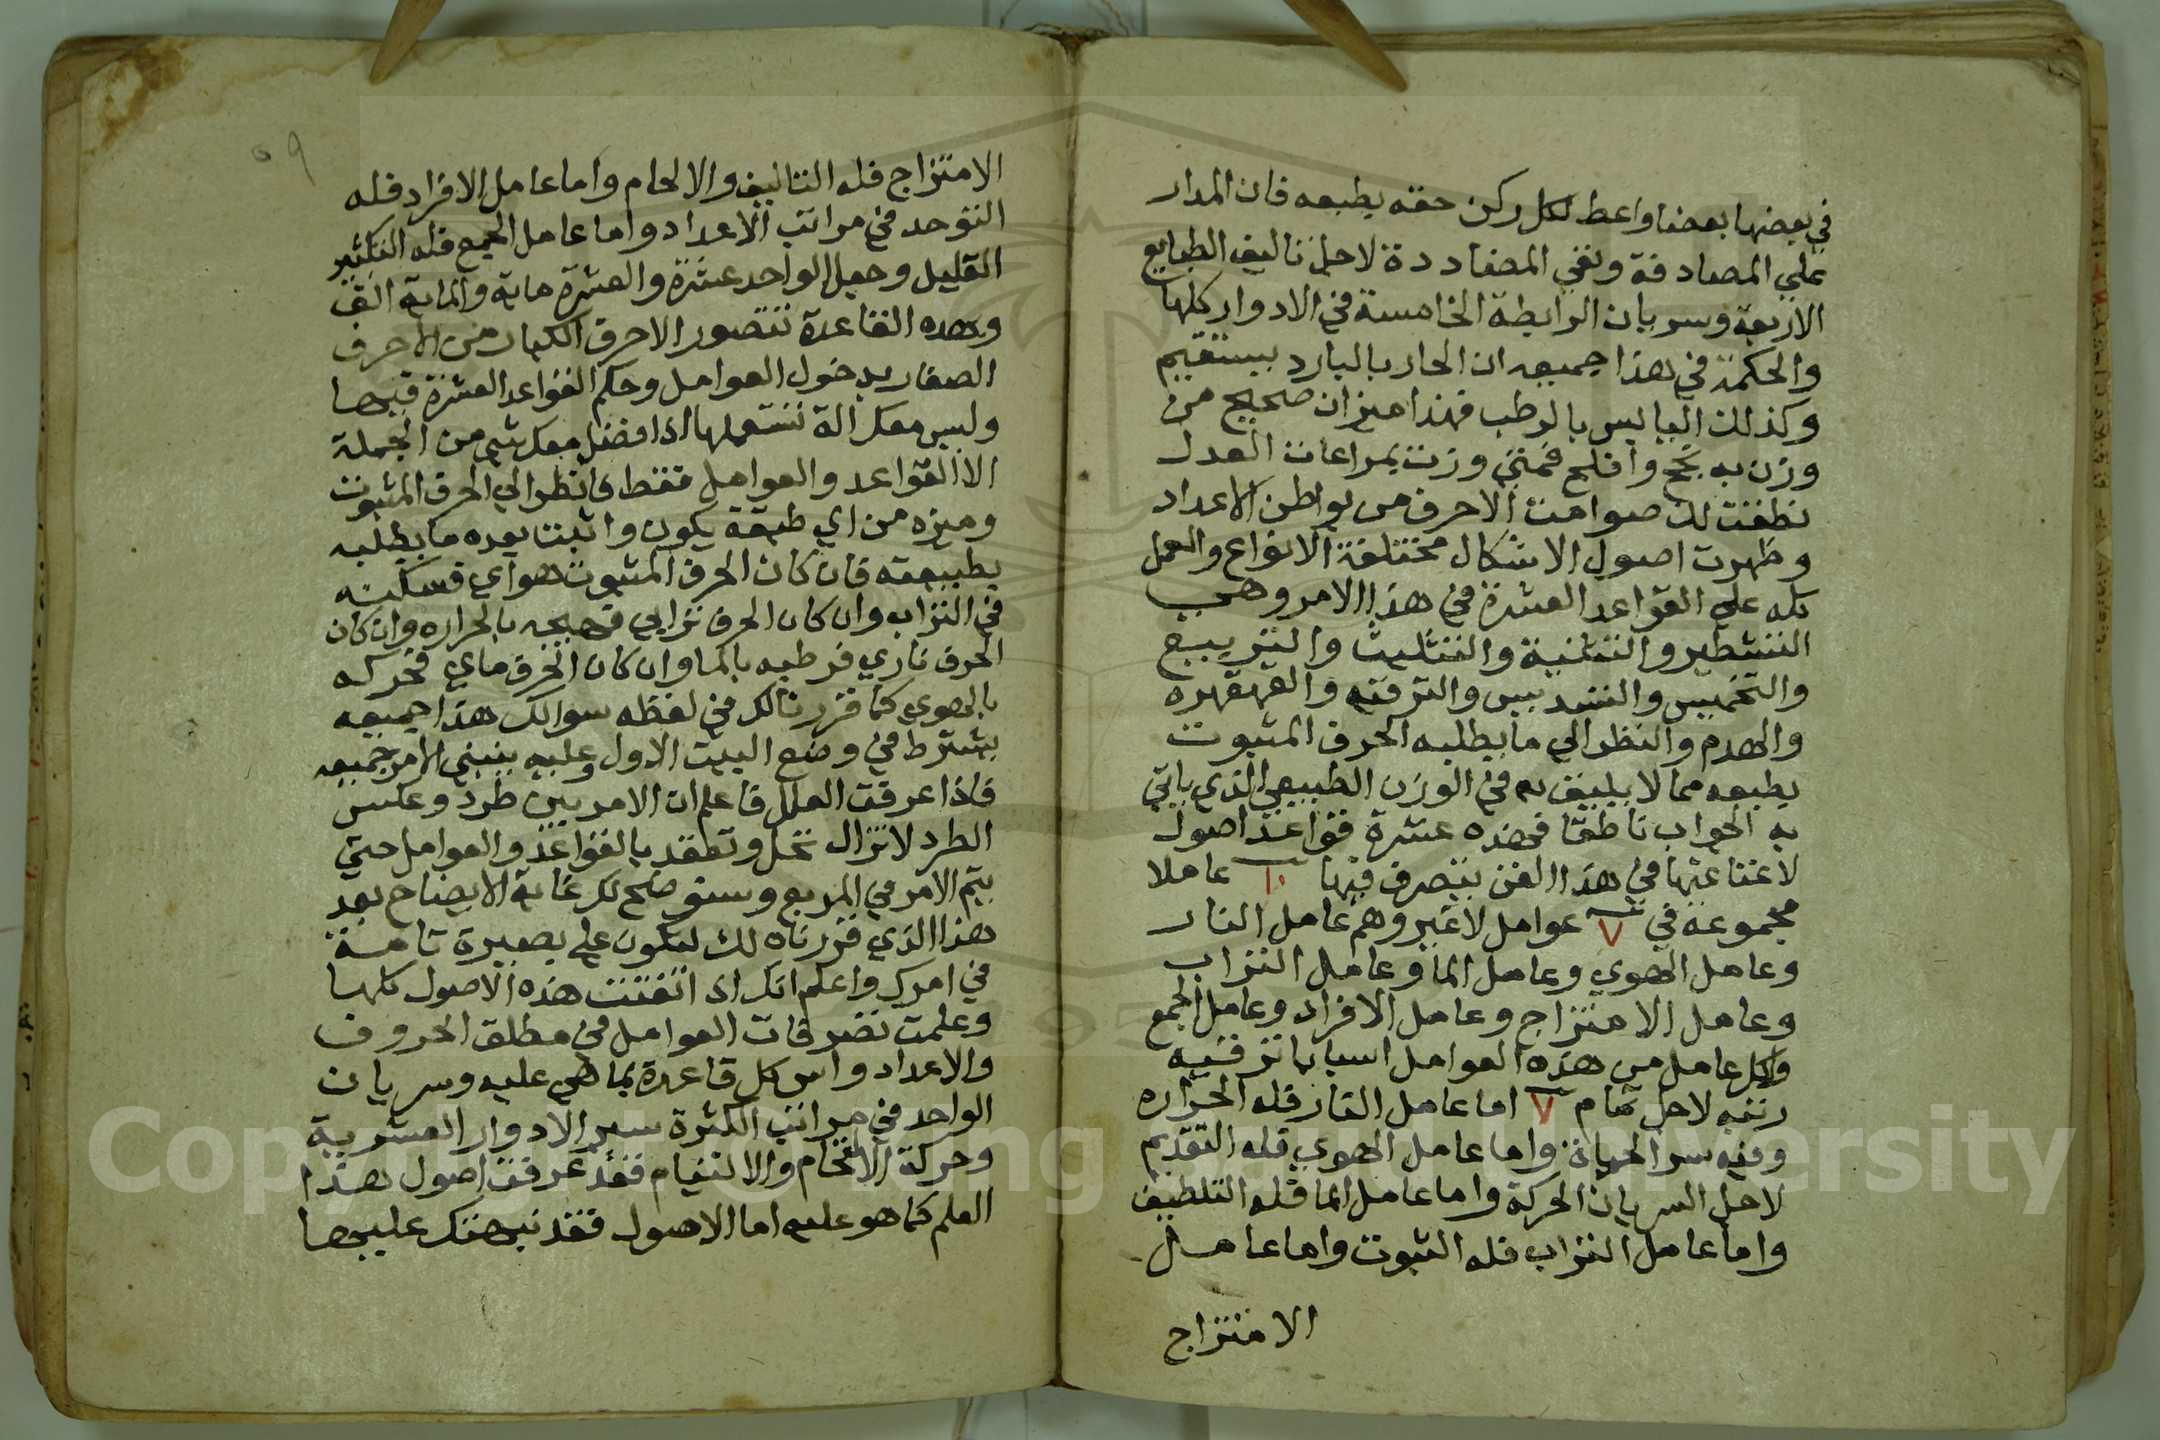 في بعضها بعضا واعط لكل ركن حقه بطبعه فان المدار
علي المصادفة ونفي المضاددة لاجل تاليف الطبايع
الاربعة وسريان الرابطة الخامسة في الادوار كلها
والحكمة في هذا جميعه ان الحار بالبارد يستقيم
وكذلك اليابس بالرطب فهذا ميزان صحيح من
وزن به نجح وافلح فمتي وزنت بمراعات العدل
نطقت لك صوامت الاحرف من بواطن الاعداد
وظهرت اصول الاشكال مختلفة الانواع والعمل
كله علي القواعد العشرة في هذا الامر وهي
التشطير والتثنية والتثليث والتربيع
والتخميس والتسديس والترفه والقهقره
والهدم والنظر الي ما يطلبه الحرف المثبوت
بطبعه مما لا يليق به في الوزن الطبيعي الذي ياتي
به الجواب ناطقا فهذه عشرة قواعد اصول
لا غنا عنها في هذا الفن يتصرف فيها ١٠ عاملا
مجموعة في ٧ عوامل لا غير وهم عامل النار
وعامل الهوي وعامل الما وعامل التراب
وعامل الامتزاج وعامل الافراد وعامل الجمع
ولكل عامل من هذه العوامل اسبابا ترقيه
رتبه لاجل تمام ٧ اما عامل النار فله الحراره
وفيه سر الحياة واما عامل الهوي فله التقديم
لاجل السريان الحركة واما عامل الما فله التلطيف
واما عامل التراب فله الثبوت واما عامل
الامتزاج
٥٩
الامتزاج فله التاليف والالحام واما عامل الافراد فله
التوحد في مراتب الاعداد واما عامل الجمع فله التكثير
القليل وجعل الواحد عشرة والعشرة ماية والماية الف
وبهذه القاعدة تتصور الاحرف الكبار من الاحرف
الصغار بدخول العوامل وحكم القواعد العشرة فيها
وليس معك الة تستعملها اذا فضل معك شي من الجملة
الا القواعد والعوامل فقط فانظر الي الحرف المثبوت
وميزه من اي طبقة يكون واثبت بعده ما يطلبه
بطبيعته فان كان الحرف المثبوت هواي فسكنه
في التراب وان كان الحرف ترابي فهيجه بالحراره وان كان
الحرف ناري فرطبه بالما وان كان الحرف ماي فحركه
بالهوي كما قررنا لك في لفظه سوالك هذا جميعه
يشترط في وضع البيت الاول وعليه ينبني الامر جميعه
فاذا عرفت العلل فاعلم ان الامر بين طرد وعكس
الطرد لا تزال تحل وتعقد بالقواعد والعوامل حتي
يتم الامر في المربع وسنوضح لك غاية الايضاح بعد
هذا الذي قررناه لك لتكون علي بصيرة تامة
في امرك واعلم انك اذا اتقنت هذه الاصول كلها
وعلمت تصرفات العوامل في مطلق الحروف
والاعداد واس كل قاعدة بما هي عليه وسريان
الواحد في مراتب الكثرة سير الادوار العشرية
وحركة الالتحام والالتيام فقد عرفت اصول هذا
العلم كما هو عليه اما الاصول فقد نبهتك عليها
Copyright © King Saud University